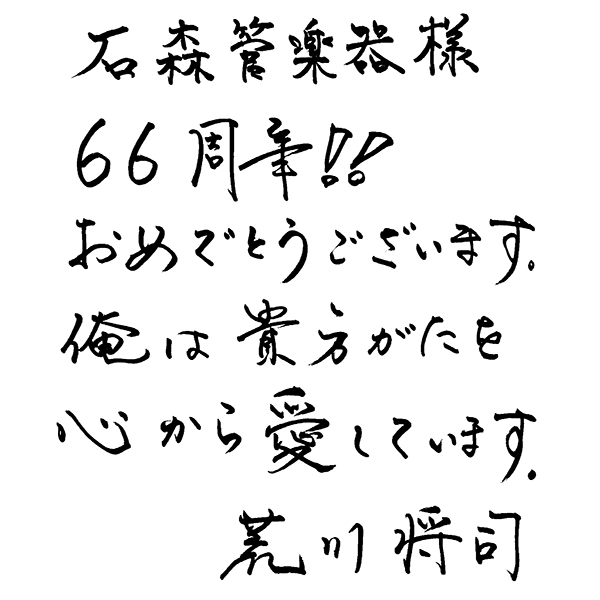 石森管楽器様
66周年!!
おめでとうございます.
俺は貴方がたを
心から愛しています.
荒川将司